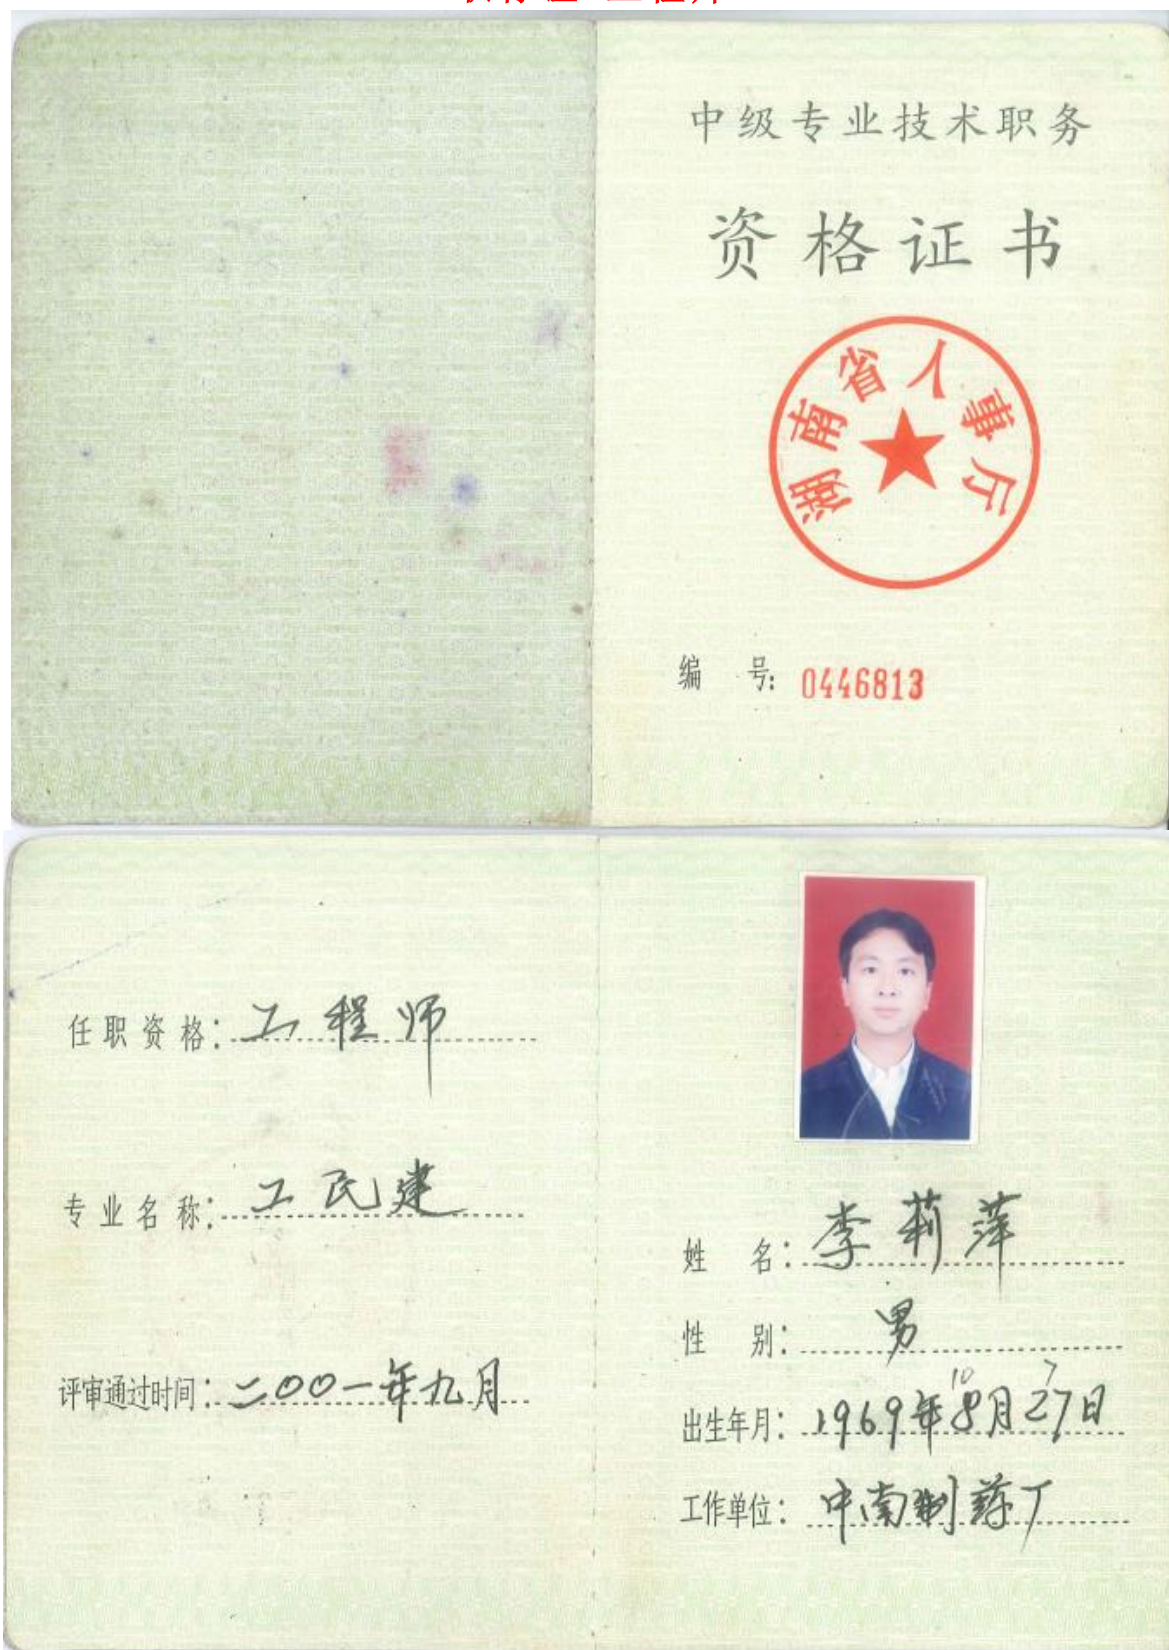 中级专业技术职务
资格证书
湖南省人事厅
编 号: 0446813
任职资格: 工程师
专业名称: 工民建
评审通过时间: 二00一年九月
姓 名: 李莉萍
性 别: 男
10 7
出生年月: 1969年8月27日
工作单位: 中南制药厂